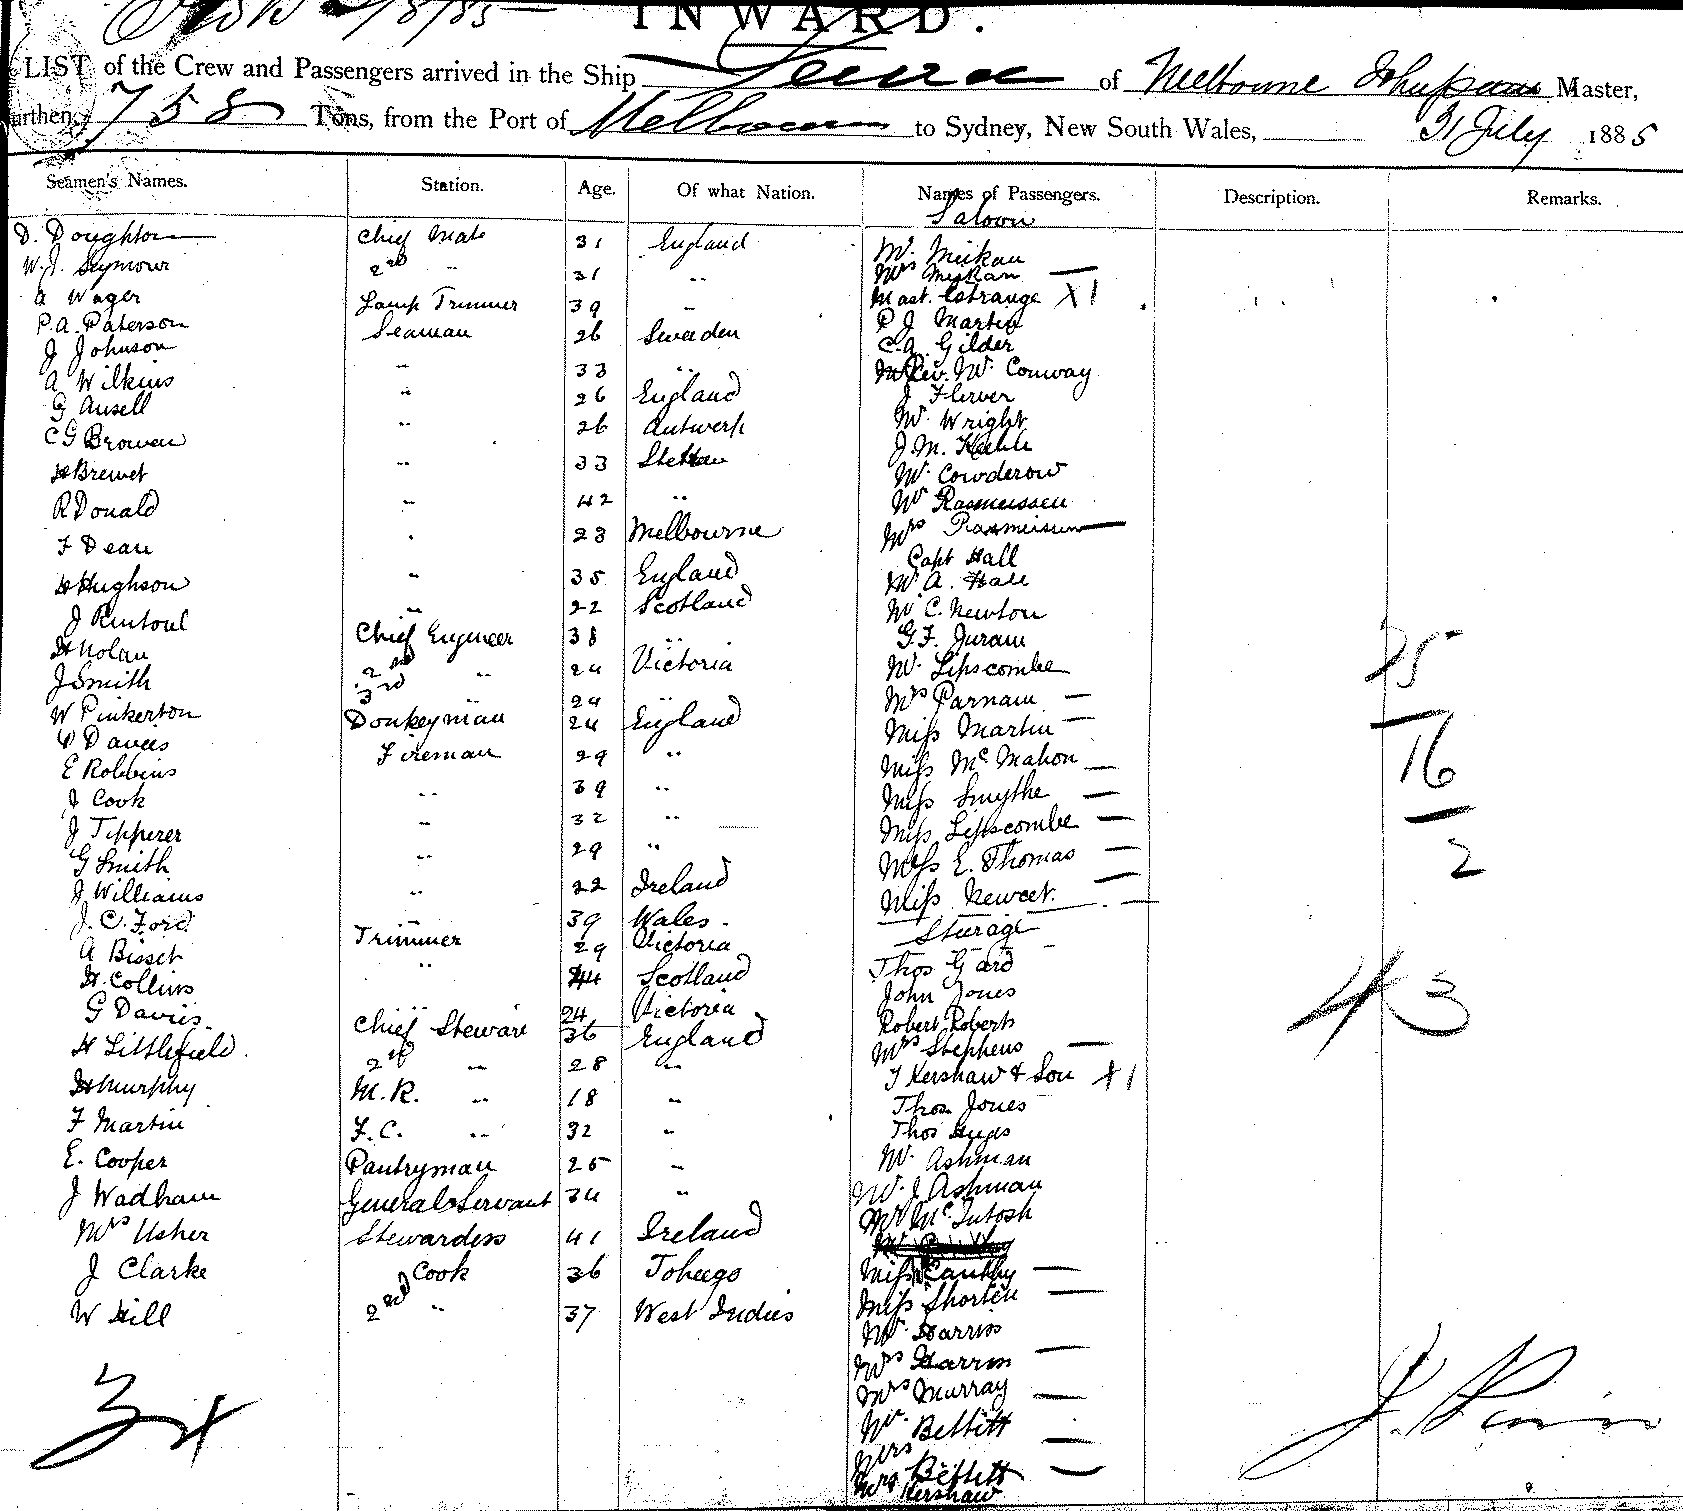 INWARD.
LIST of the Crew and Passengers arrived in the Ship of Melbourne Master,
758 Tons, from the Port of Melbourne to Sydney, New South Wales, 31 July 1885
Seamen's Names. Station. Age. Of what Nation. Names of Passengers. Description. Remarks.
Saloon
D. Doughton Chief Mate 31 England
W.J. Seymour 2nd " 31 "
A Wager Lamp Trimmer 39 "
P.A. Paterson Seaman 26 Sweden
J Johnson " 33 "
A Wilkins " 26 England
G Ansell " 26 Antwerp
C G Browen " 33 Stettin
H Brewet " 42 "
R Donald " 23 Melbourne
F Dean " 35 England
H Hughson " 22 Scotland
J Rintoul Chief Engineer 38 "
H Nolan 2nd " 24 Victoria
J Smith 3rd 24 "
W Pinkerton Donkeyman 24 England
D Davies Fireman 29 "
E Robbins " 39 "
J Cook " 32 "
J Tipperer " 29 "
G Smith " 22 Ireland
J Williams " 39 Wales.
J.C. Ford Trimmer 29 Victoria
A Bisset " 44 Scotland
H. Collins " 24 Victoria
G Davies. Chief Steward 36 England
H Littlefield. 2nd " 28 "
H Murphy M.R. " 18 "
F Martin F.C. " 32 "
E. Cooper Pantryman 25 "
J Wadham General Servant 34 "
Mrs Usher Stewardess 41 Ireland
J Clarke Cook 36 Tobego
W Hill 2nd " 37 West Indies
34
Mr. Miskan
Mrs Miskan
Mast. Estrange X1
P J Martin
C.A. Gilder
Rev. Mr. Conway
J
Mr. Wright
J.M.
Mr. Cowderow
Mr Rasmussen
Mrs Rasmussen
Capt Hall
Mr A. Hall
Mr C. Newton
G.F. Juram
Mr. Lipscombe
Mrs Parnam
Miss Martin
Miss McMahon
Miss Smythe
Miss Lipscombe
Miss E. Thomas
Miss Newcet.
Sturage
Thos Gard
John Jones
Robert Roberts
Mrs Stephens
T Kershaw & Son +1
Thos Jones
Thos Huges
Mr. Ashman
Mr. J Ashman
Mr McIntosh
Miss Canthy
Miss Shorten
Mr. Harriss
Mrs Harriss
Mrs Murray
Mr. Bettitt
Mrs Bettitt
Mrs Kershaw
25
16
2
43